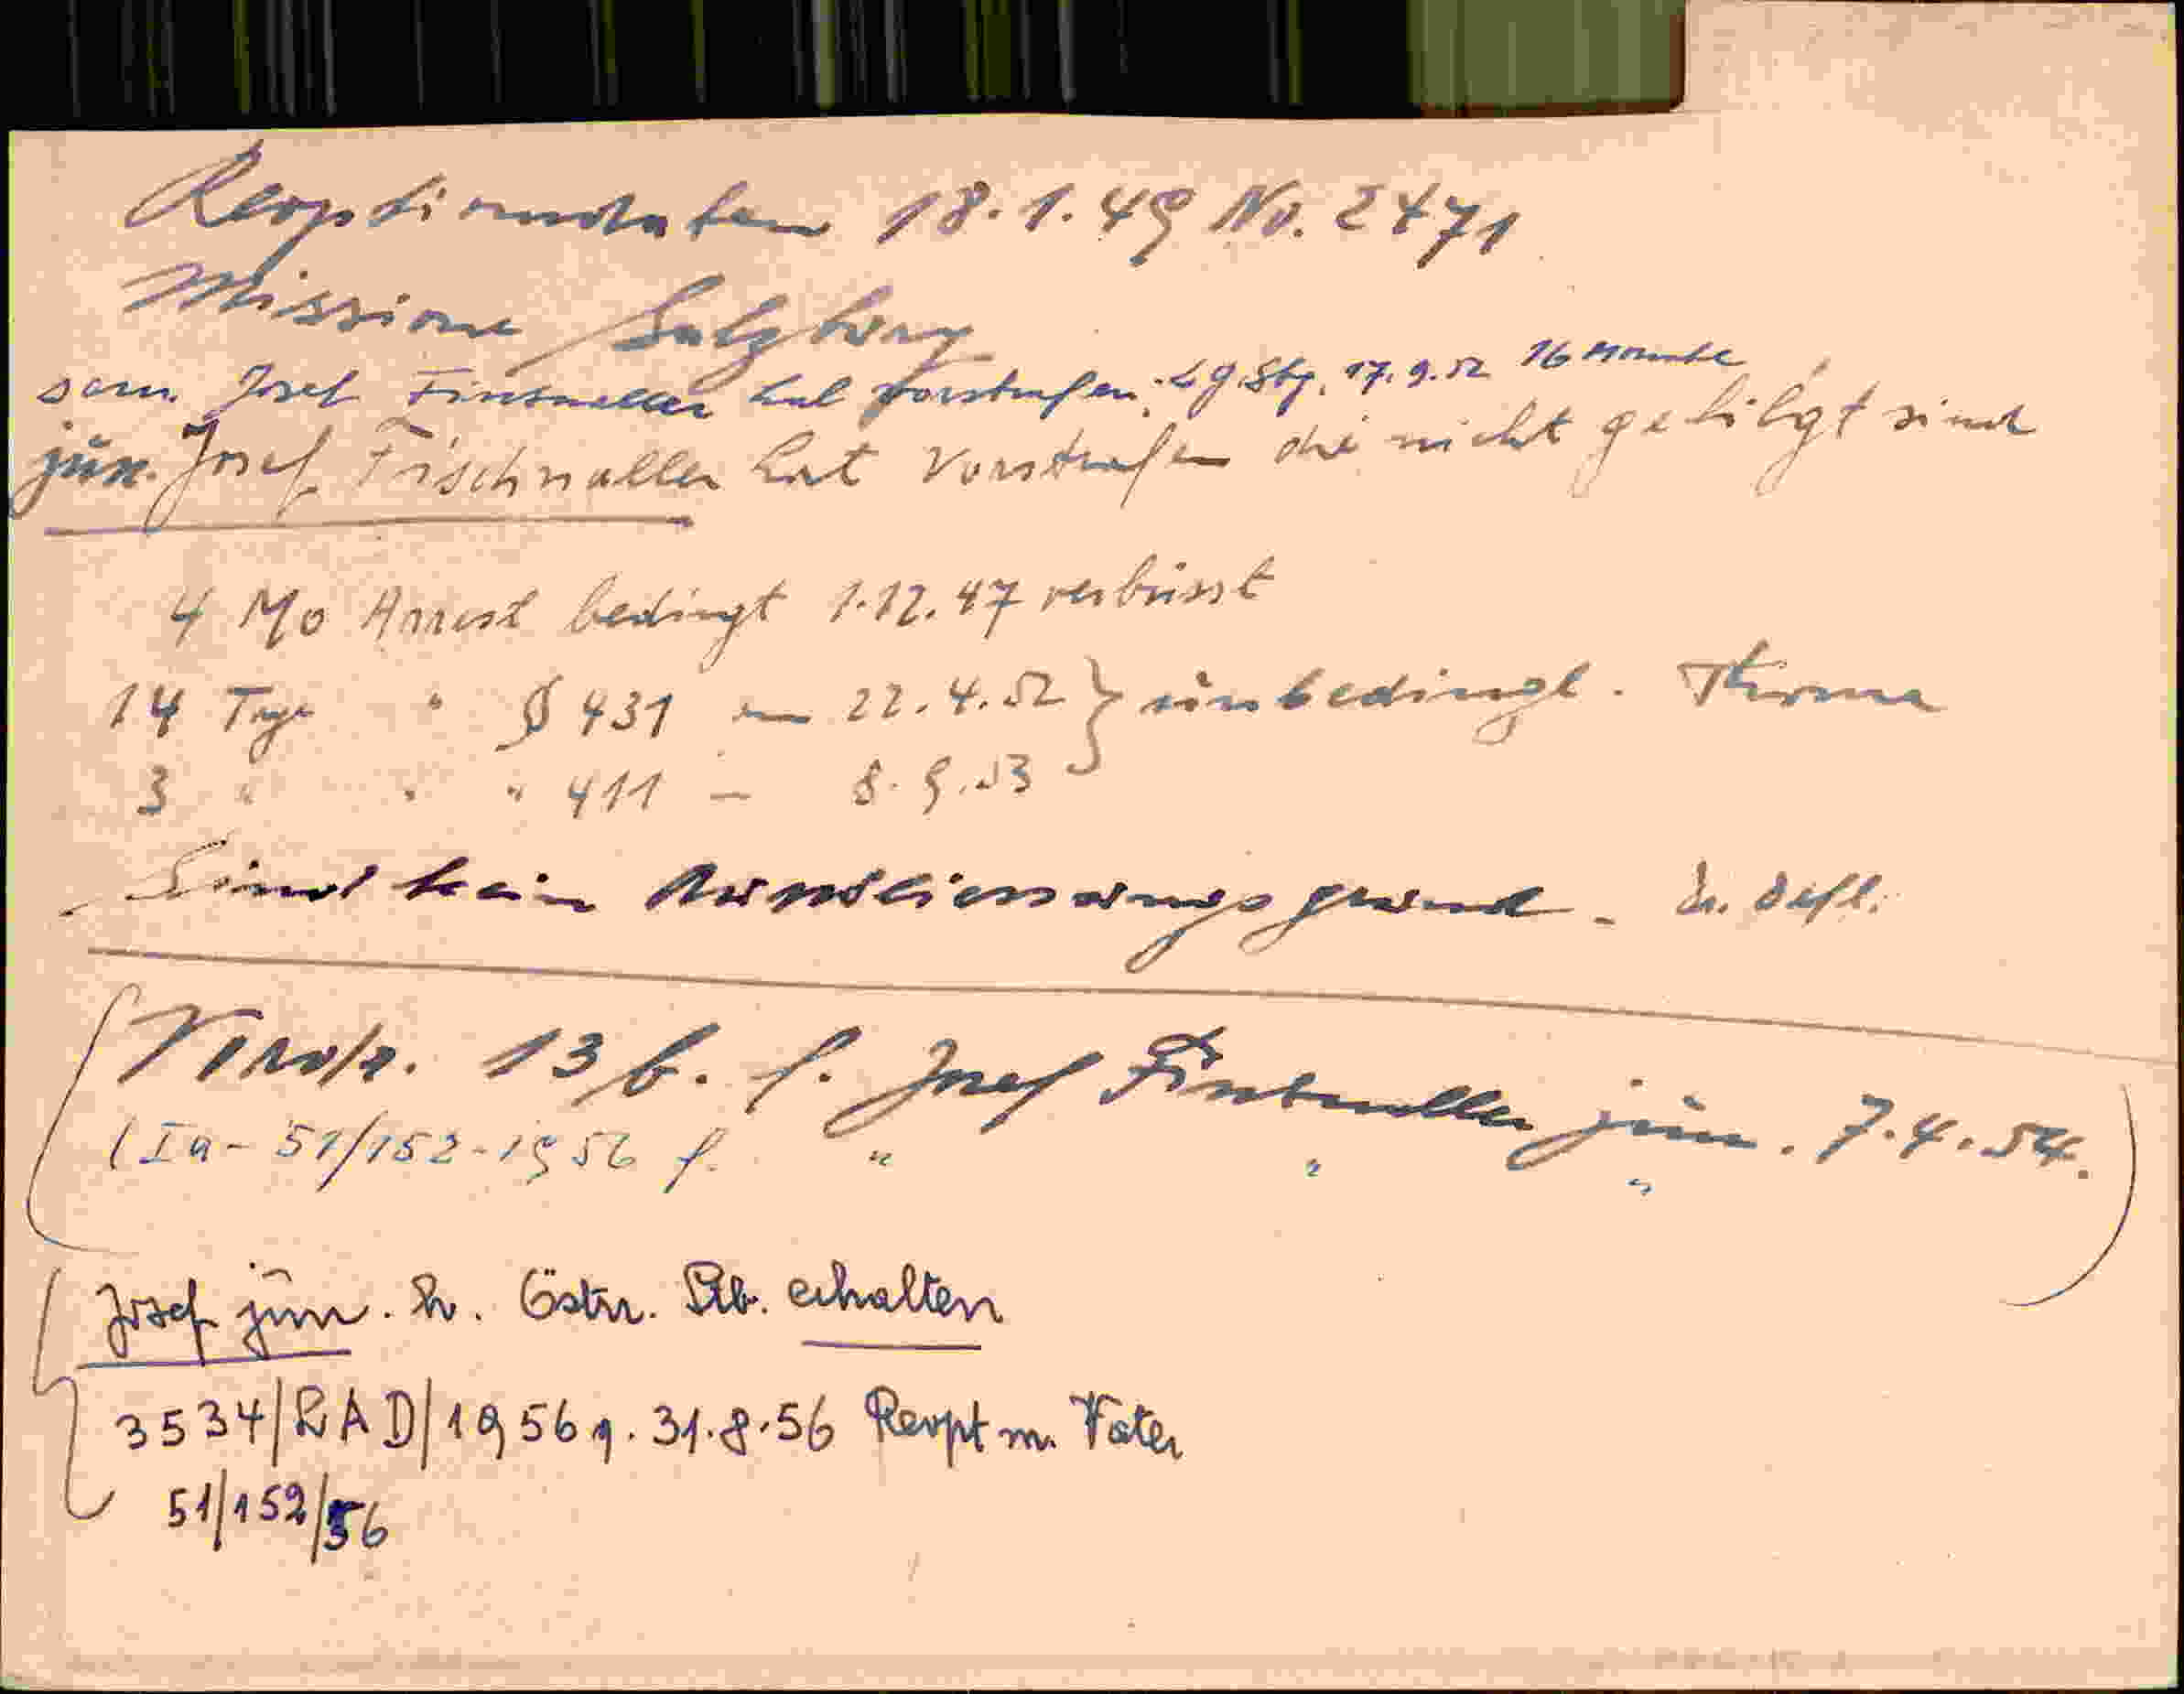 Reoptionsdaten 18.1.49 No. 2471
Missione Salzburg
sen. Josef Fischnaller hat Vorstrafen: LG. Sbg. 17.9.52 16 Monate
jun. Josef Fischnaller hat Vorstrafen die nicht getilgt sind
4 Mo Arrest bedingt 1.12.47 verbüsst
14 Tge " § 431 am 22.4.52 } unbedingt.
3 " " " 411 - 8.9.53
Sind kein Ausschliessungsgrund.
13 b. f. Josef Fischnaller jun. 7.4.54.
(Ia - 51/152-1956 f. " " "
Josef jun. h. Östr. Stb. erhalten
3534/RAD/1956 g. 31.8.56 Reopt m. Vater
51/152/56